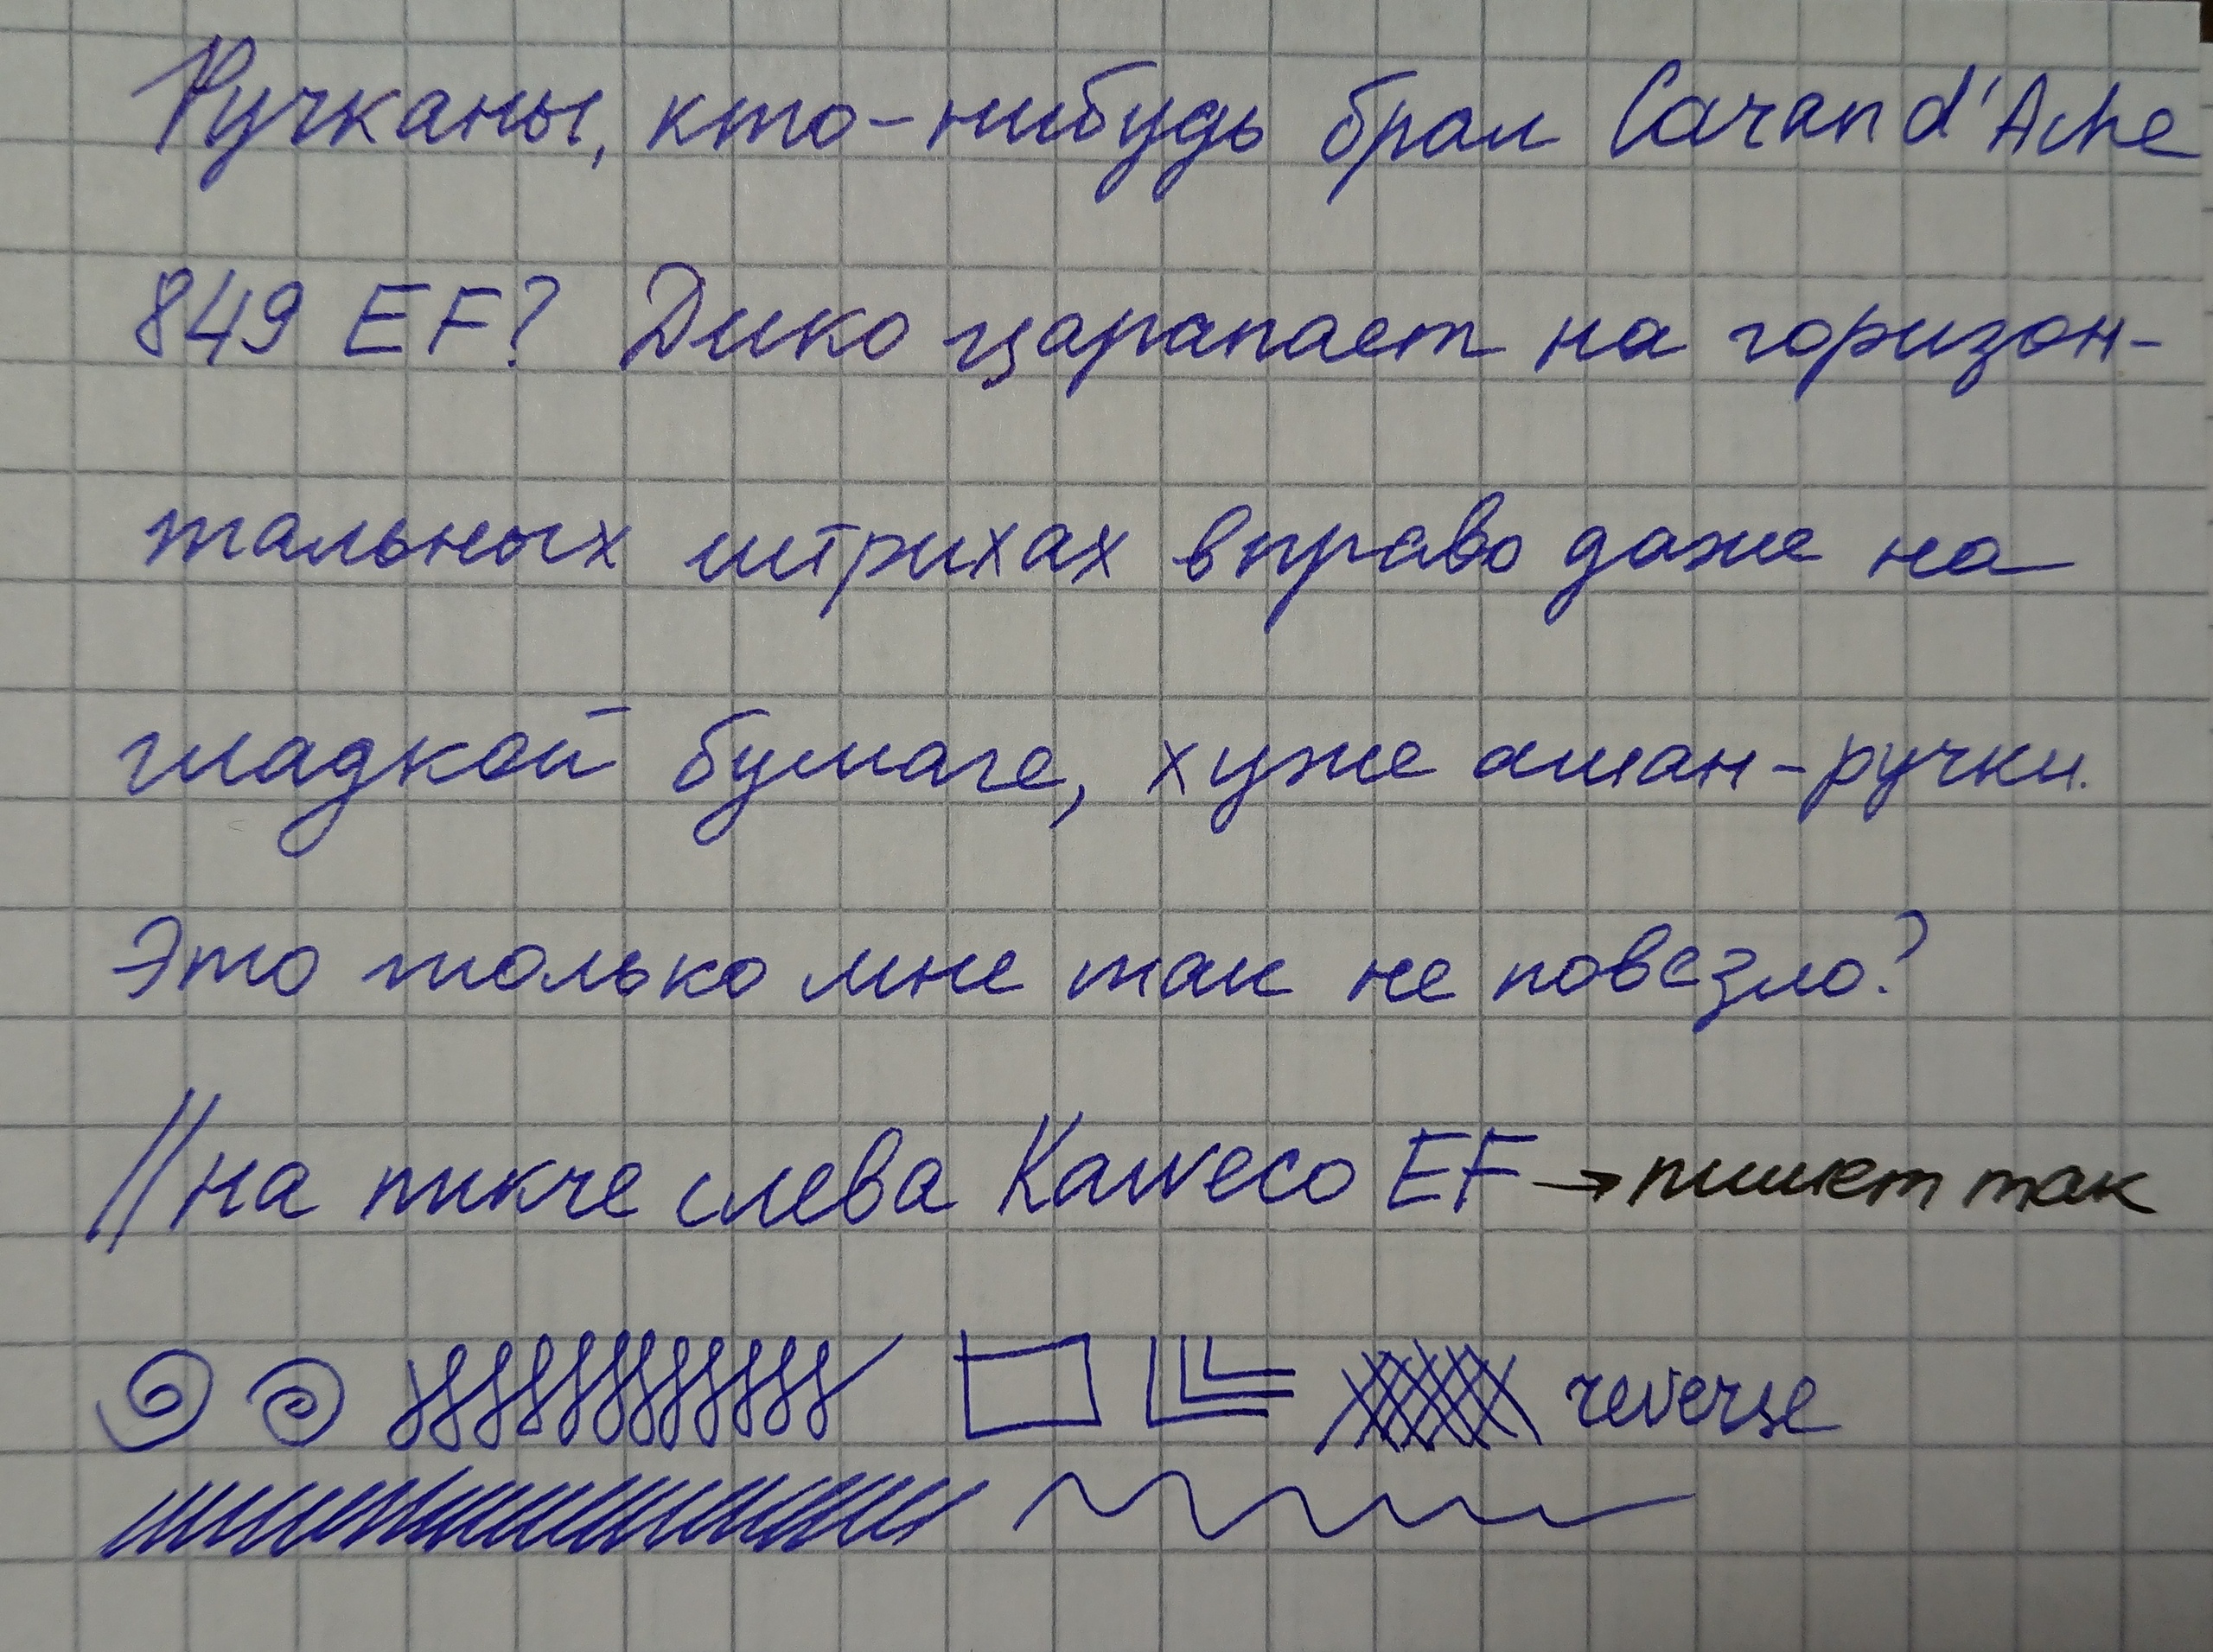 Ручканы, кто-нибудь брал Caran d'Ache
849 EF? Дико царапает на горизон-
тальных штрихах вправо даже на
гладкой бумаге, хуже ашан-ручки.
Это только мне так не повезло?
//на пикче слева Kaweco EF→пишет так
reverse